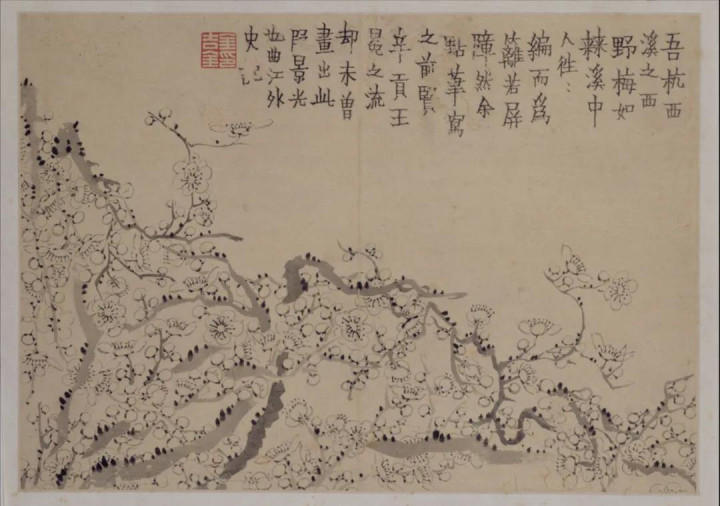 吾杭西
溪之西
野梅如
棘溪中
人往：
編而爲
籬若屏
障然余
點筆寫
之前賢
辛貢王
冕之流
却未曾
畫出此
段景光
也曲江外
史記